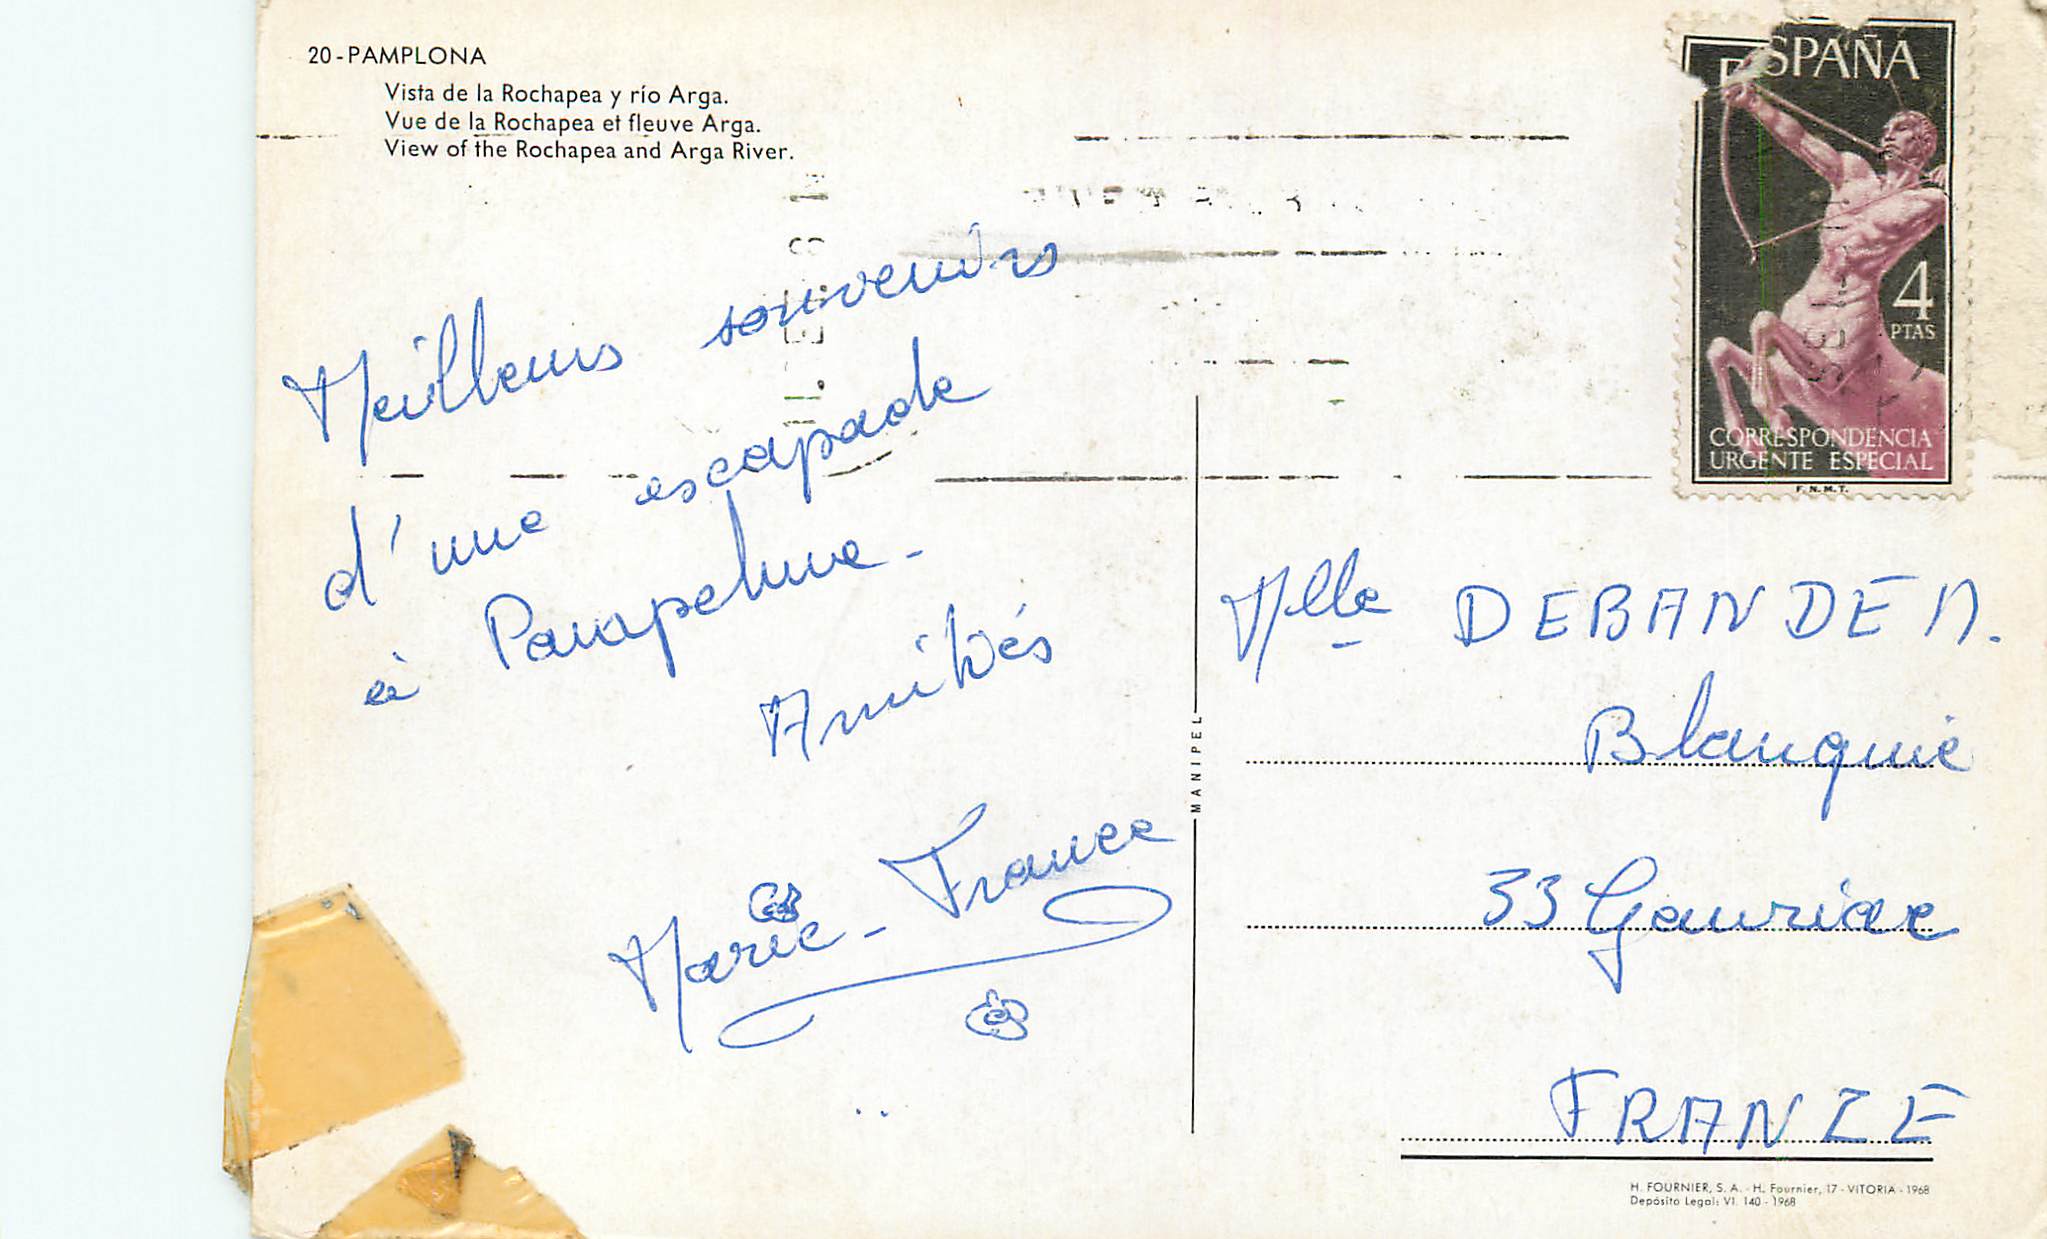 20-PAMPLONA
Vista de la Rochapea y río Arga.
Vue de la Rochapea et fleuve Arga.
View of the Rochapea and Arga River.
ESPAÑA
4
PTAS
CORRESPONDENCIA
URGENTE ESPECIAL
F.N.M.T.
Meilleurs souvenirs
d'une escapade
à Pampelune -
Amitiés
Marie-France
MANIPEL
Mlle DEBANDE M.
Blanquie
33 Gauriac
FRANCE
H. FOURNIER, S. A. - H. Fournier, 17 - VITORIA - 1968
Depósito Legal: VI. 140 - 1968